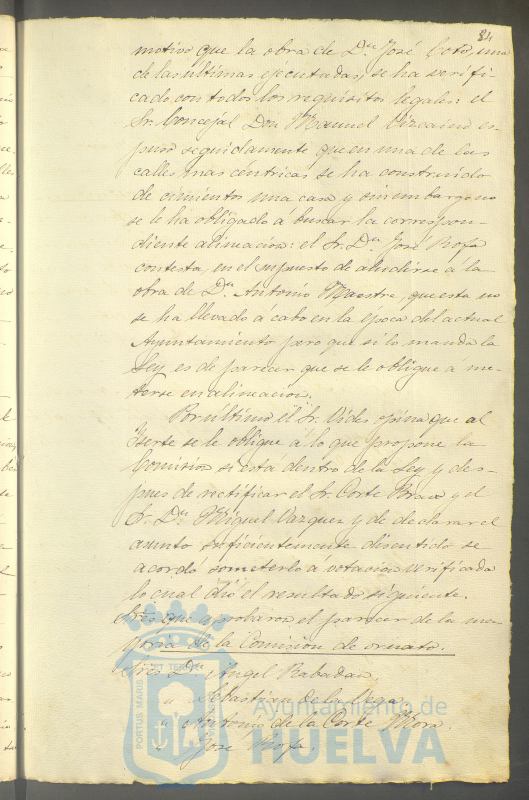 84
motivo que la obra de Dn José Coto, una
de las ultimas ejecutadas, se ha verifi-
cado con todos los requisitos legales: el
Sr. Concejal Don Manuel Vizcaino es-
puso seguidamente que en una de las
calles mas céntricas se ha construido
de cimientos una casa y sin embargo no
se le há obligado á buscar la correspon-
diente alineacion: el Sr. Dn José Rofa
contesta, en el supuesto de aludirse á la
obra de Dn Antonio Maestre, que esta no
se ha llevado a cabo en la epoca del actual
Ayuntamiento pero que si lo manda la
Ley, es de parecer que se le obligue a me-
terse en alineacion.
Por ultimo el Sr. Vides opina que al
Iserte se le obligue á lo que propone la
Comision si está dentro de la Ley y des-
pues de rectificar el Sr. Corte Bravo y el
Sr. Dn Miguel Vazquez y de declarar el
asunto suficientemente discutido se
acordó someterlo á votacion verificada
lo cual dió el resultado siguiente.
Sres que aprobaron el parecer de la ma-
yoria de la Comision de ornato.
Sres Dn Angel Rabadan.
" Sebastian de la Vega.
" Antonio de la Corte Mora.
" José Rofa.
PORTUS MARIS ET TERRAE
Ayuntamiento de
HUELVA